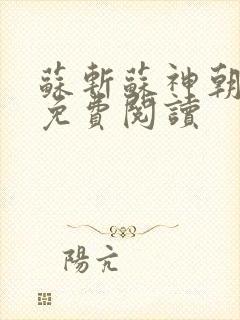 蘇斬蘇神朝
免費閱讀
陽亢